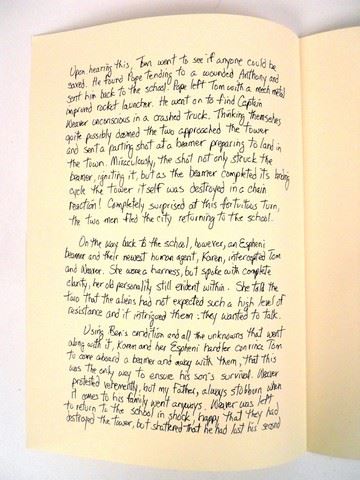 Upon hearing this, Tom went to see if anyone could be
saved. He found Pope tending to a wounded Anthony and
sent him back to the school. Pope left Tom with a mech metal
improved rocket launcher. He went on to find Captain
Weaver unconscious in a crashed truck. Thinking themselves
quite possibly doomed the two approached the tower
and sent a parting shot at a beamer preparing to land in
the town. Miraculously, the shot not only struck the
beamer, igniting it, but as the beamer completed its landing
cycle the tower itself was destroyed in a chain
reaction! Completely surprised at this fortuitous turn,
the two men fled the city returning to the school.
On the way back to the school, however, an Espheni
beamer and their newest human agent, Karen, intercepted Tom
and Weaver. She wore a harness, but spoke with complete
clarity, her old personality still evident within. She told the
two that the aliens had not expected such a high level of
resistance and it intrigued them: they wanted to talk.
Using Ben's condition and all the unknowns that went
along with it, Karen and her Espheni handler convince Tom
to come aboard a beamer and away with them, that this
was the only way to ensure his son's survival. Weaver
protested vehemently, but my father, always stubborn when
it comes to his family went anyways. Weaver was left
to return to the school in shock, happy that they had
destroyed the tower, but shattered that he had lost his second